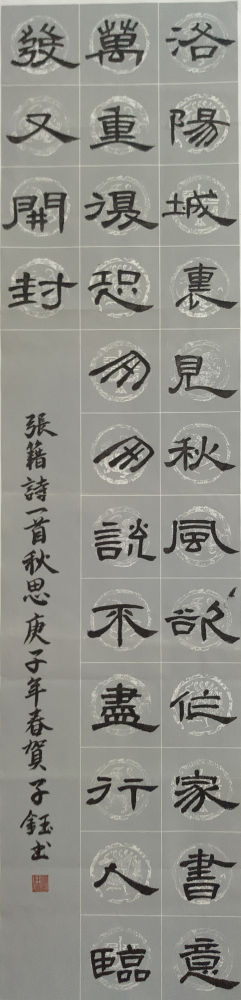 洛陽城裏見秋風欲作家書意
萬重復恐匆匆說不盡行人臨
發又開封
張籍詩一首秋思庚子年春賀子鈺書